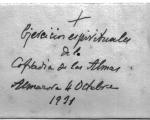 +
Ejercicios espirituales
de la
Cofradia de las Almas
Almazora 4 Octubre
1931